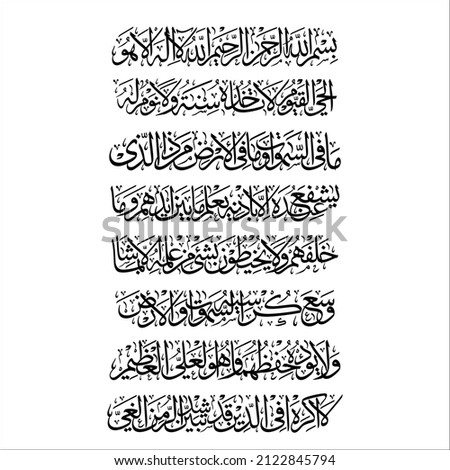 بسم الله الرحمن الرحيم الله لا اله الا هو
الحي القيوم لا تاخذه سنة ولا نوم له
ما في السموات وما في الارض من ذا الذي
يشفع عنده الا باذنه يعلم ما بين ايديهم وما
خلفهم ولا يحيطون بشيء من علمه الا بما شا
وسع كرسيه السموات والارض
ولا يوده حفظهما وهو العلي العظيم
لا اكراه في الدين قد تبين الرشد من الغي
shutterstock
shutterstock.com · 2122845794